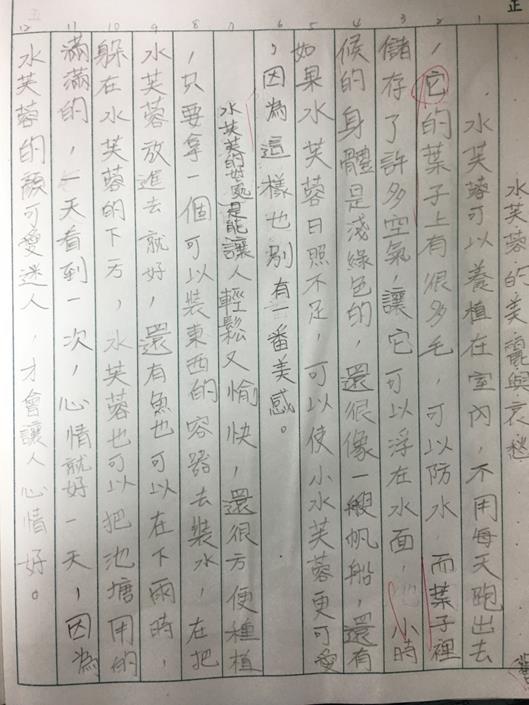 水芙蓉的美麗與哀愁
水芙蓉可以養植在室內，不用每天跑出去
，它的葉子上有很多毛，可以防水，而葉子裡
儲存了許多空氣，讓它可以浮在水面，小時
候的身體是淺綠色的，還很像一艘帆船，還有
如果水芙蓉日照不足，可以使小水芙蓉更可愛
，因為這樣也別有一番美感。
水芙蓉的好處是能讓人輕鬆又愉快，還很方便種植
，只要拿一個可以裝東西的容器去裝水，在把
水芙蓉放進去就好，還有魚也可以在下雨時，
躲在水芙蓉的下方，水芙蓉也可以把池塘用的
滿滿的，一天看到一次，心情就好一天，因為
水芙蓉的可愛迷人，才會讓人心情好。